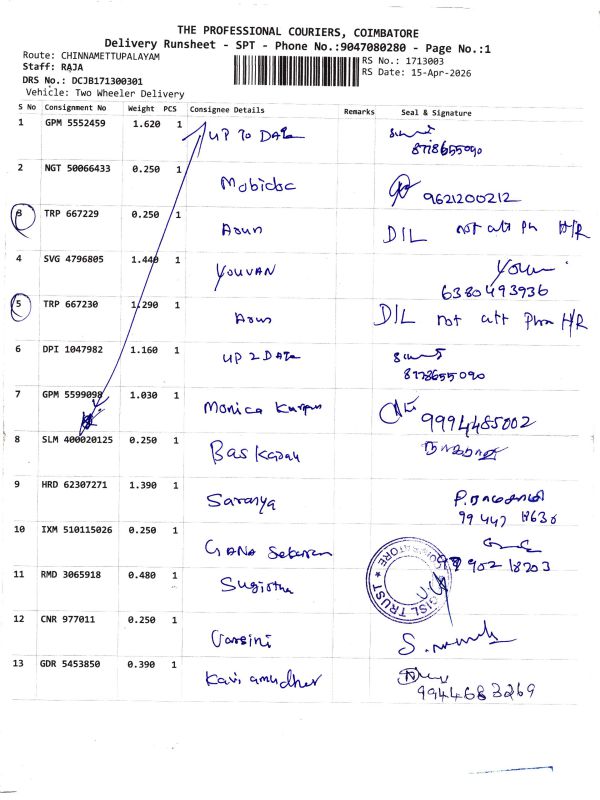 THE PROFESSIONAL COURIERS, COIMBATORE
Delivery Runsheet - SPT - Phone No.:9047080280 - Page No.:1
Route: CHINNAMETTUPALAYAM
Staff: RAJA
DRS No.: DCJB171300301
Vehicle: Two Wheeler Delivery
RS No.: 1713003
RS Date: 15-Apr-2026
S No Consignment No Weight PCS Consignee Details Remarks Seal & Signature
1 GPM 5552459 1.620 1 UP TO DATE
8778655090
2 NGT 50066433 0.250 1 Mobidoc 9621200212
3 TRP 667229 0.250 1 Arun D/L not att Ph H/R
4 SVG 4796805 1.440 1 YOUVAN
6380493936
5 TRP 667230 1.290 1 Arun D/L not att Phon H/R
6 DPI 1047982 1.160 1 UP 2 DATE
8778655090
7 GPM 5599098 1.030 1 Monica 9994485002
8 SLM 400020125 0.250 1 Baskaran
9 HRD 62307271 1.390 1 Saranya
10 IXM 510115026 0.250 1
11 RMD 3065918 0.480 1 18203
TRUST
12 CNR 977011 0.250 1 Varsini
13 GDR 5453850 0.390 1
9944683269